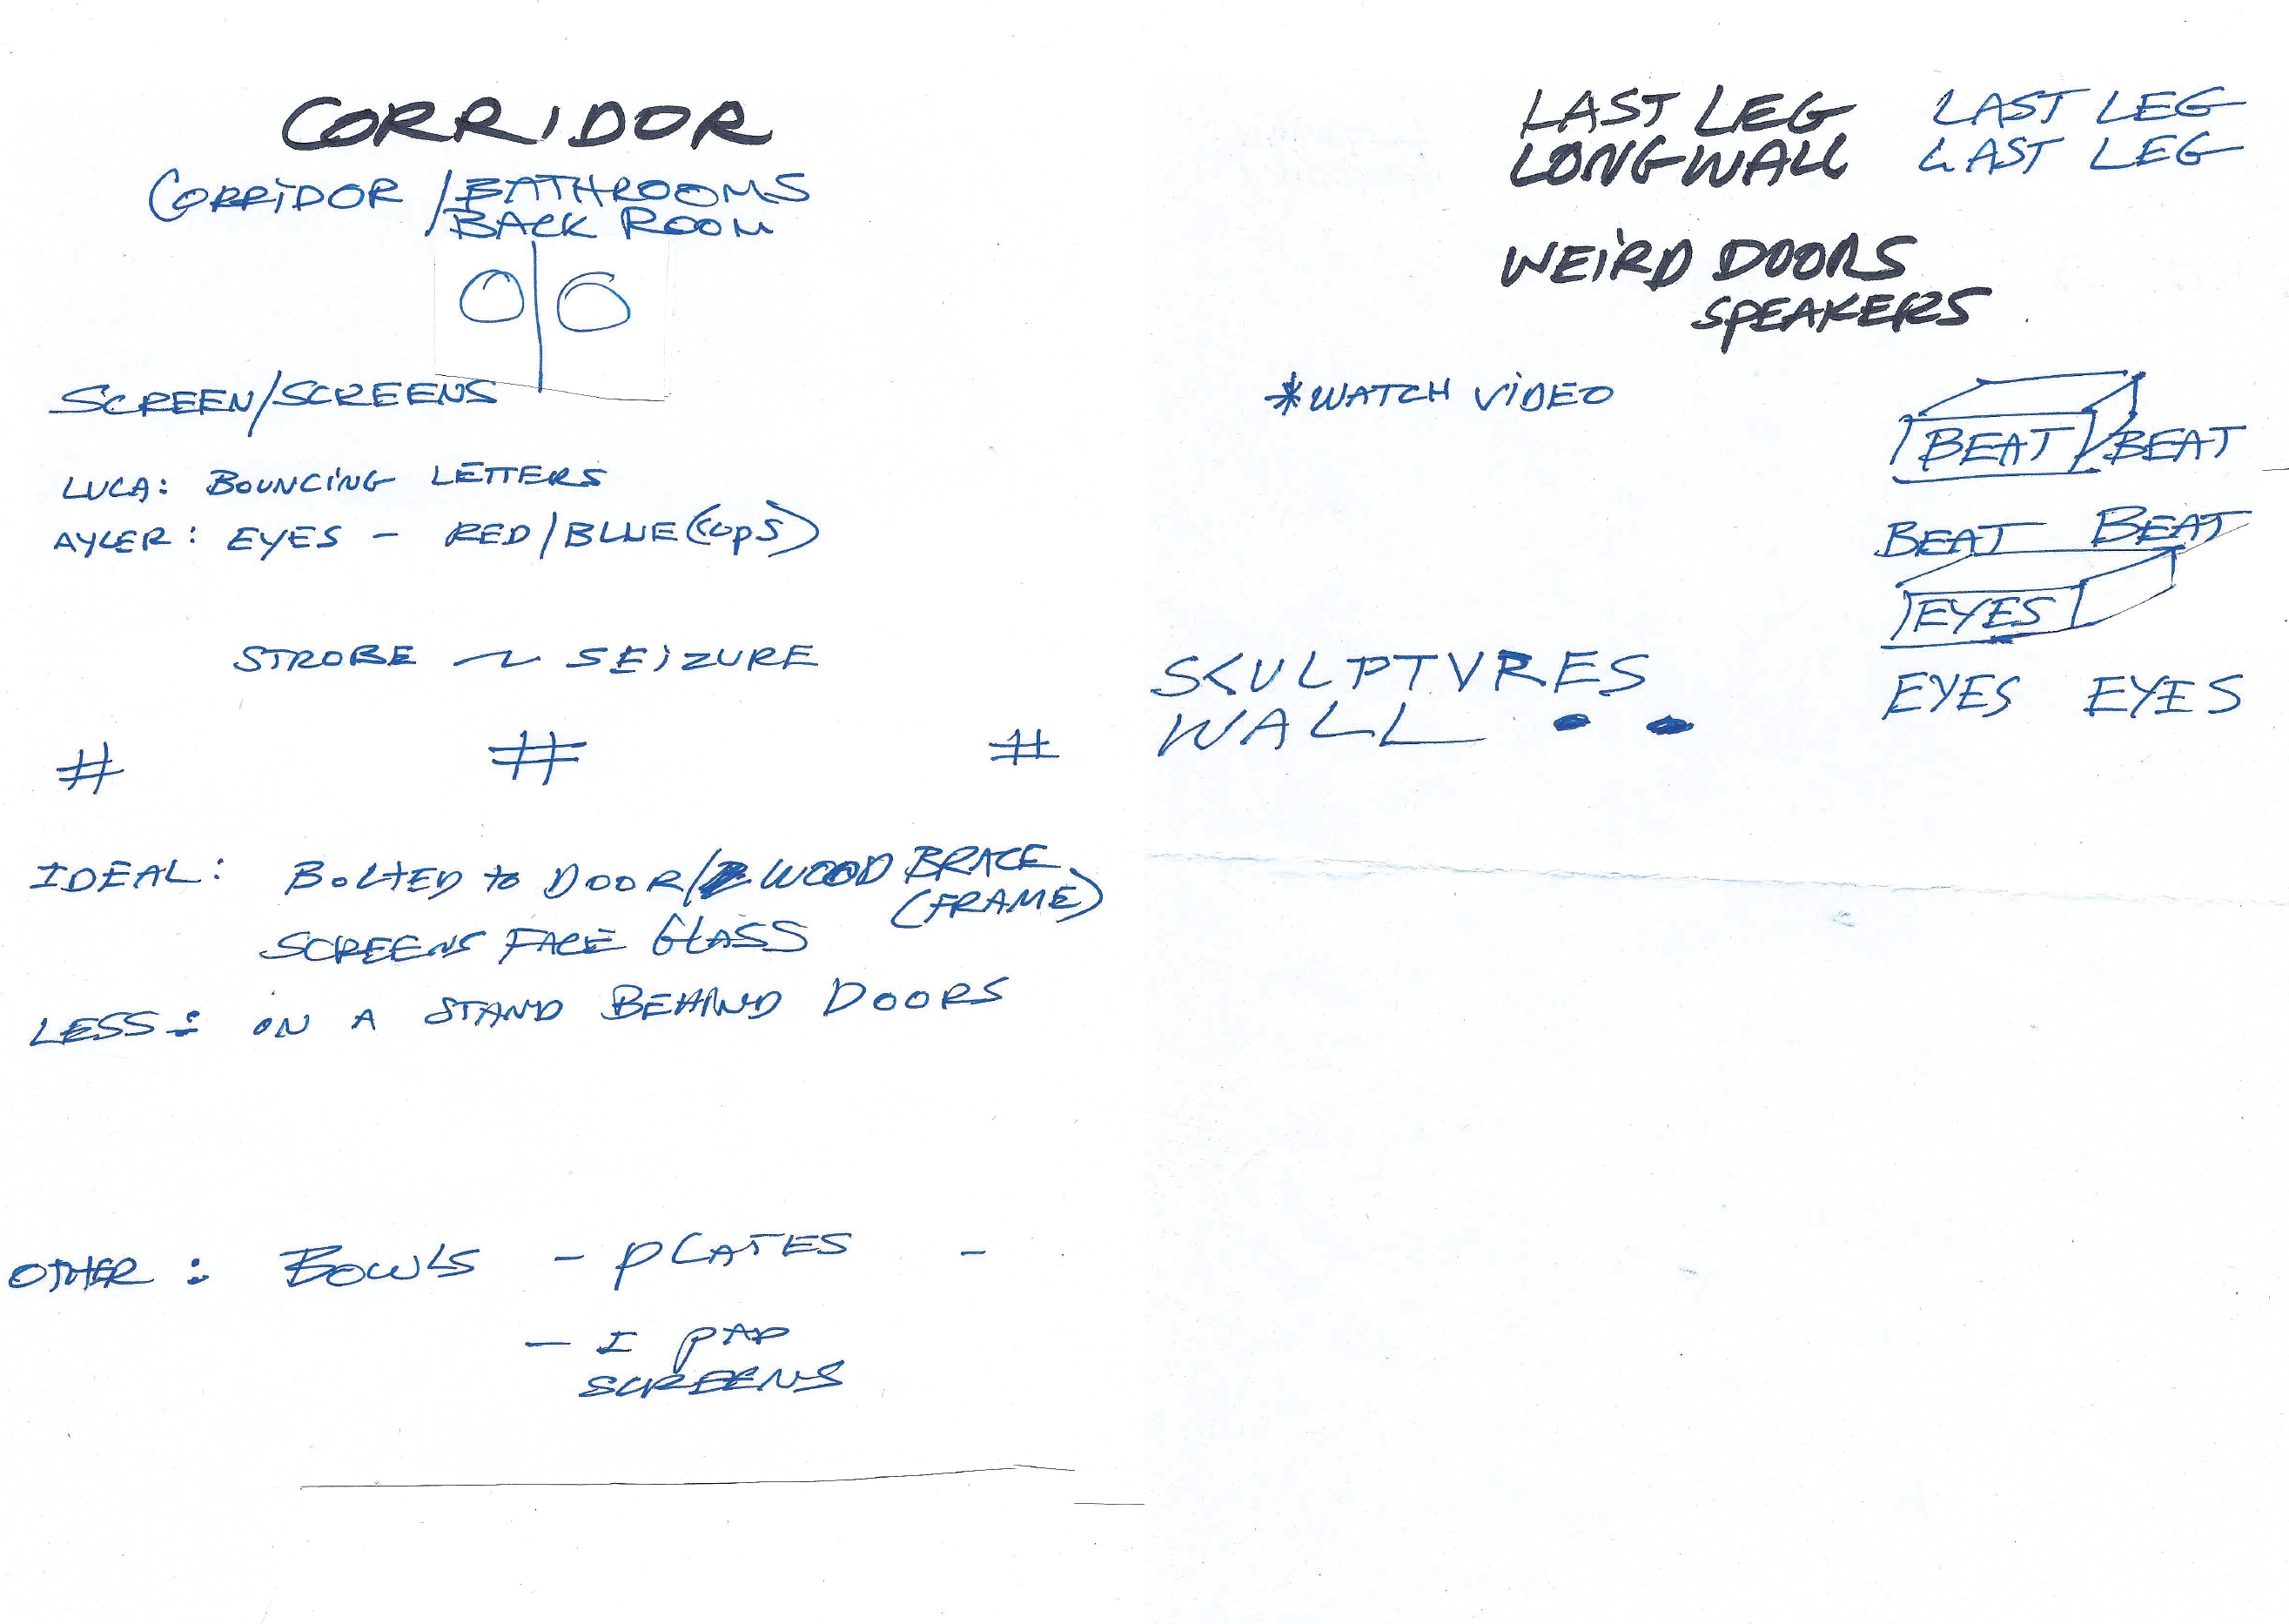 CORRIDOR
CORRIDOR / BATHROOMS
/ BACK ROOM
SCREEN/SCREENS
LUCA: BOUNCING LETTERS
AYLER: EYES - RED/BLUE (COPS)
STROBE ~ SEIZURE
# # #
IDEAL: BOLTED to DOOR/ WOOD BRACE
(FRAME)
SCREENS FACE GLASS
LESS: ON A STAND BEHIND DOORS
OTHER: BOWLS - PLATES -
- I PAD
SCREENS
LAST LEG LAST LEG
LONG WALL LAST LEG
WEIRD DOORS
SPEAKERS
*WATCH VIDEO
BEAT BEAT
BEAT BEAT
EYES
EYES EYES
SCULPTURES
WALL